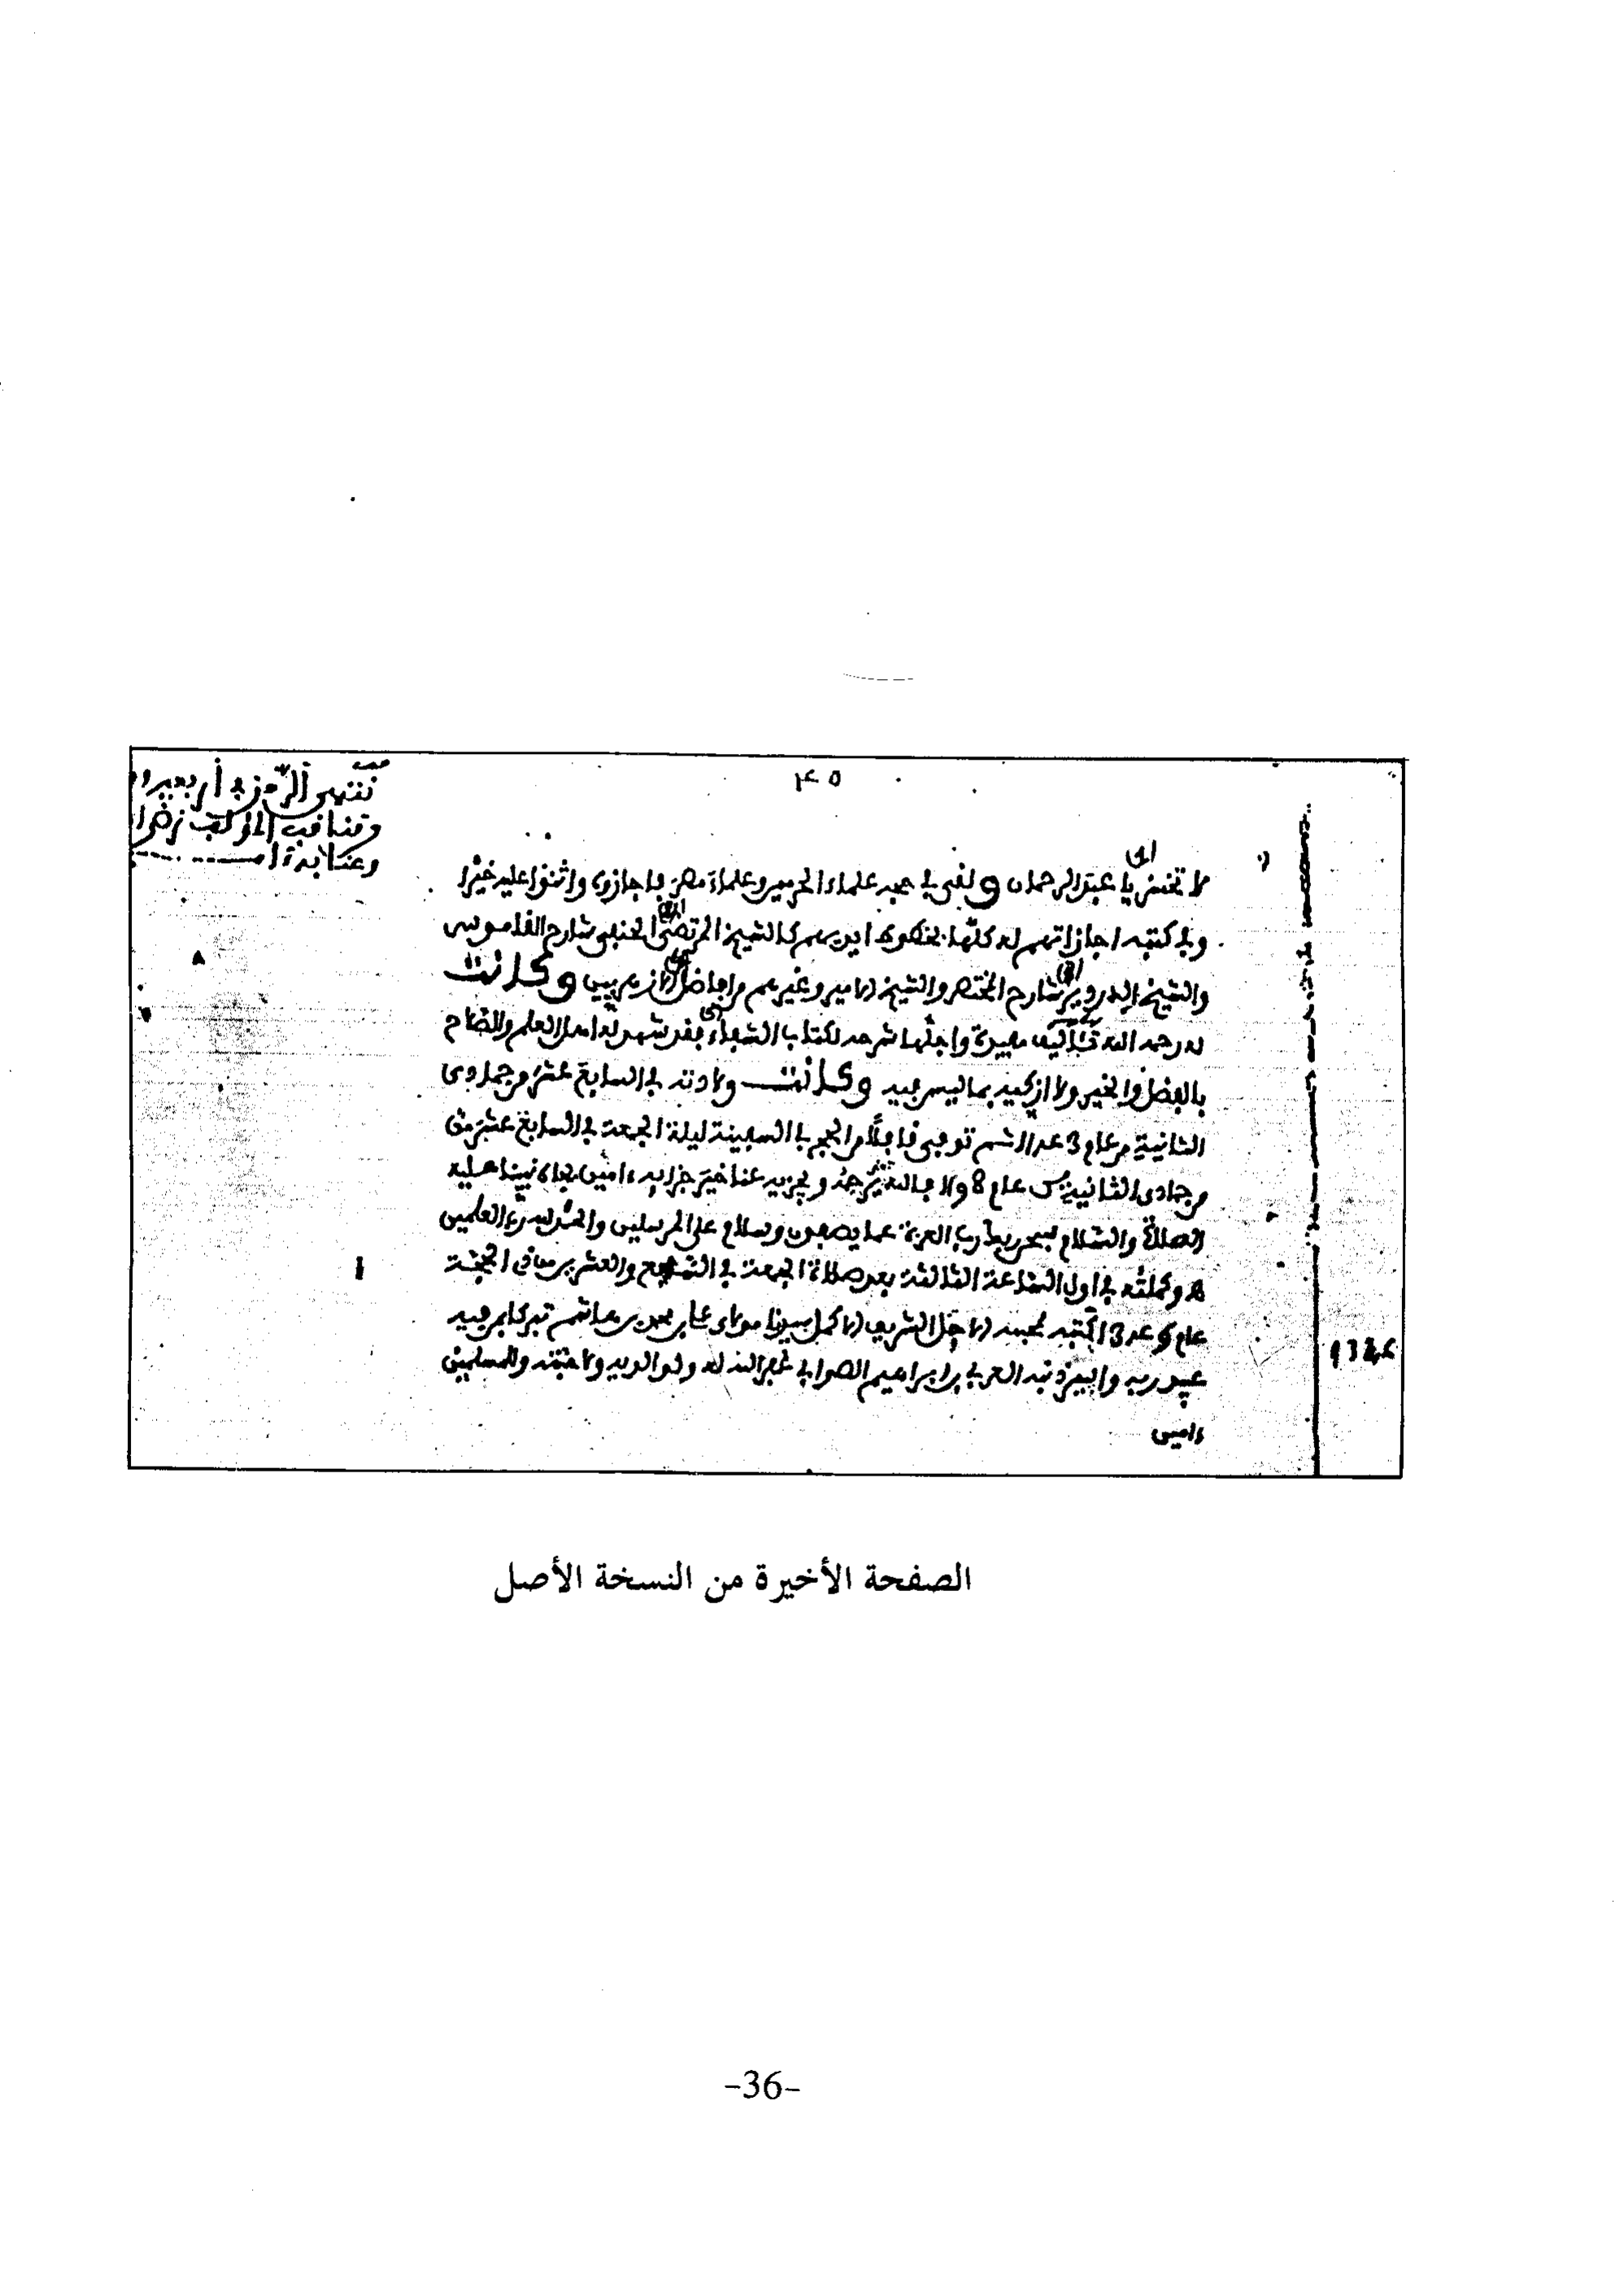 ٤٥
لا تخش يا عبد الرحمان ولقي في حجه علماء الحرمين وعلماء مصر فأجازوه واثنوا عليه خيرا
وفي كتبه اجازاتهم له كلها بخطوط ايديهم كالشيخ المرتضى الحنفي شارح القاموس
والشيخ الدردير شارح المختصر والشيخ الامير وغيرهم من افاضل الازهريين وكانت
له رحمه الله تآليف مفيدة واجلها شرحه لكتاب الشفاء فقد شهد له اهل العلم والصلاح
بالفضل والخير ولا ازكيه بما ليس فيه وكانت ولادته في السابع عشر من جمادى
الثانية من عام 3 ثم توفي قافلا من الحج في السفينة ليلة الجمعة في السابع عشر من
من جمادى الثانية من عام فالله يرحمه ويجزيه عنا خير جزائه ءامين بجاه نبينا عليه
الصلاة والسلام سبحن ربك رب العزة عما يصفون وسلام على المرسلين والحمد لله رب العلمين
ه وكملته في اول الساعة الثالثة بعد صلاة الجمعة في والعشرين من الحجة
عام كتبه لمحبه الاجل الشريف الاكمل سيدنا مولاي بن هاشم تبركا به عبيد
عبيد ربه واسير ذنبه العربي بن ابراهيم الصوابي غفر الله له ولوالديه ولاحبته وللمسلمين
ءامين
الصفحة الأخيرة من النسخة الأصل
-36-